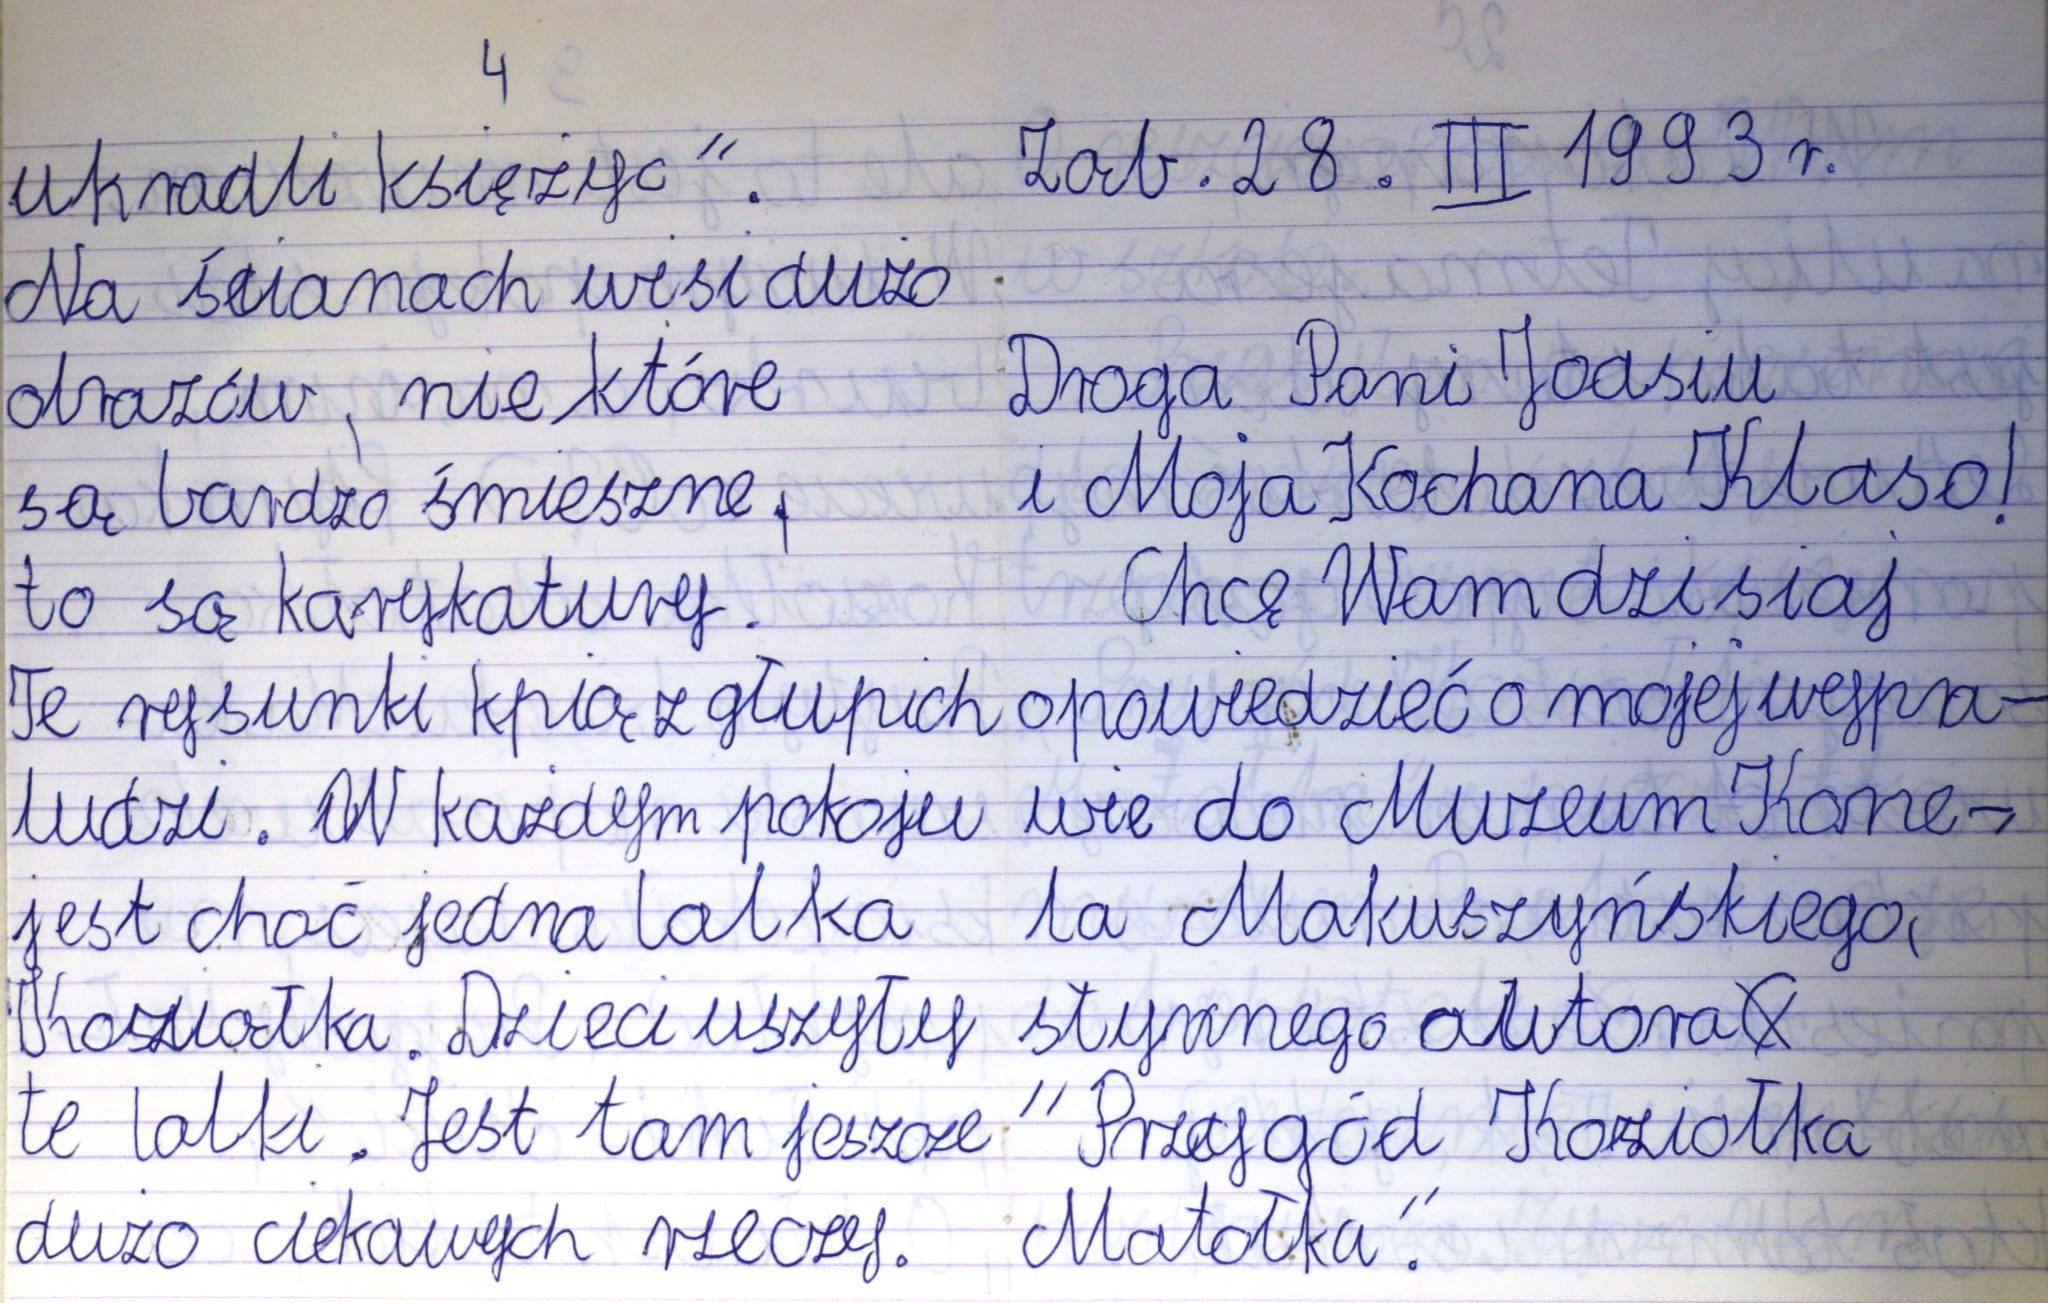 4
ukradli księżyc".
Na ścianach wisi dużo
obrazów, nie które
są bardzo śmieszne,
to są karykatury.
Te rysunki kpią z głupich
ludzi. W każdym pokoju
jest choć jedna lalka
Koziołka. Dzieci uszyły
te lalki. Jest tam jeszcze
dużo ciekawych rzeczy.
Ząb. 28. III 1993 r.
Droga Pani Joasiu
i Moja Kochana Klaso!
Chcę Wam dzisiaj
opowiedzieć o mojej wypra-
wie do Muzeum Korne-
la Makuszyńskiego,
słynnego autora
"Przygód Koziołka
Matołka".